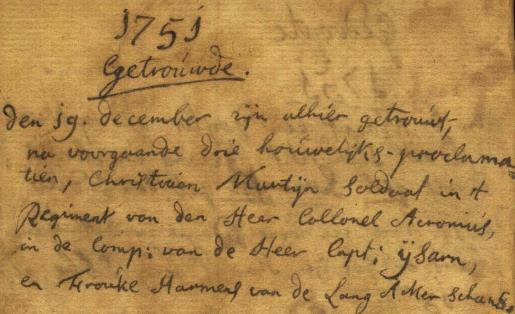 1751
Getrouwde.
den 19. december zijn alhier getrouwt,
na voorgaande drie houwelijks-proclama=
tien, Christiaen Martijn Soldaat in 't
Regiment van den Heer Collonel Acronius,
in de Comp: van de Heer Capt: ijsarn,
en Frouke Harmens van de Lang Akker Schans.